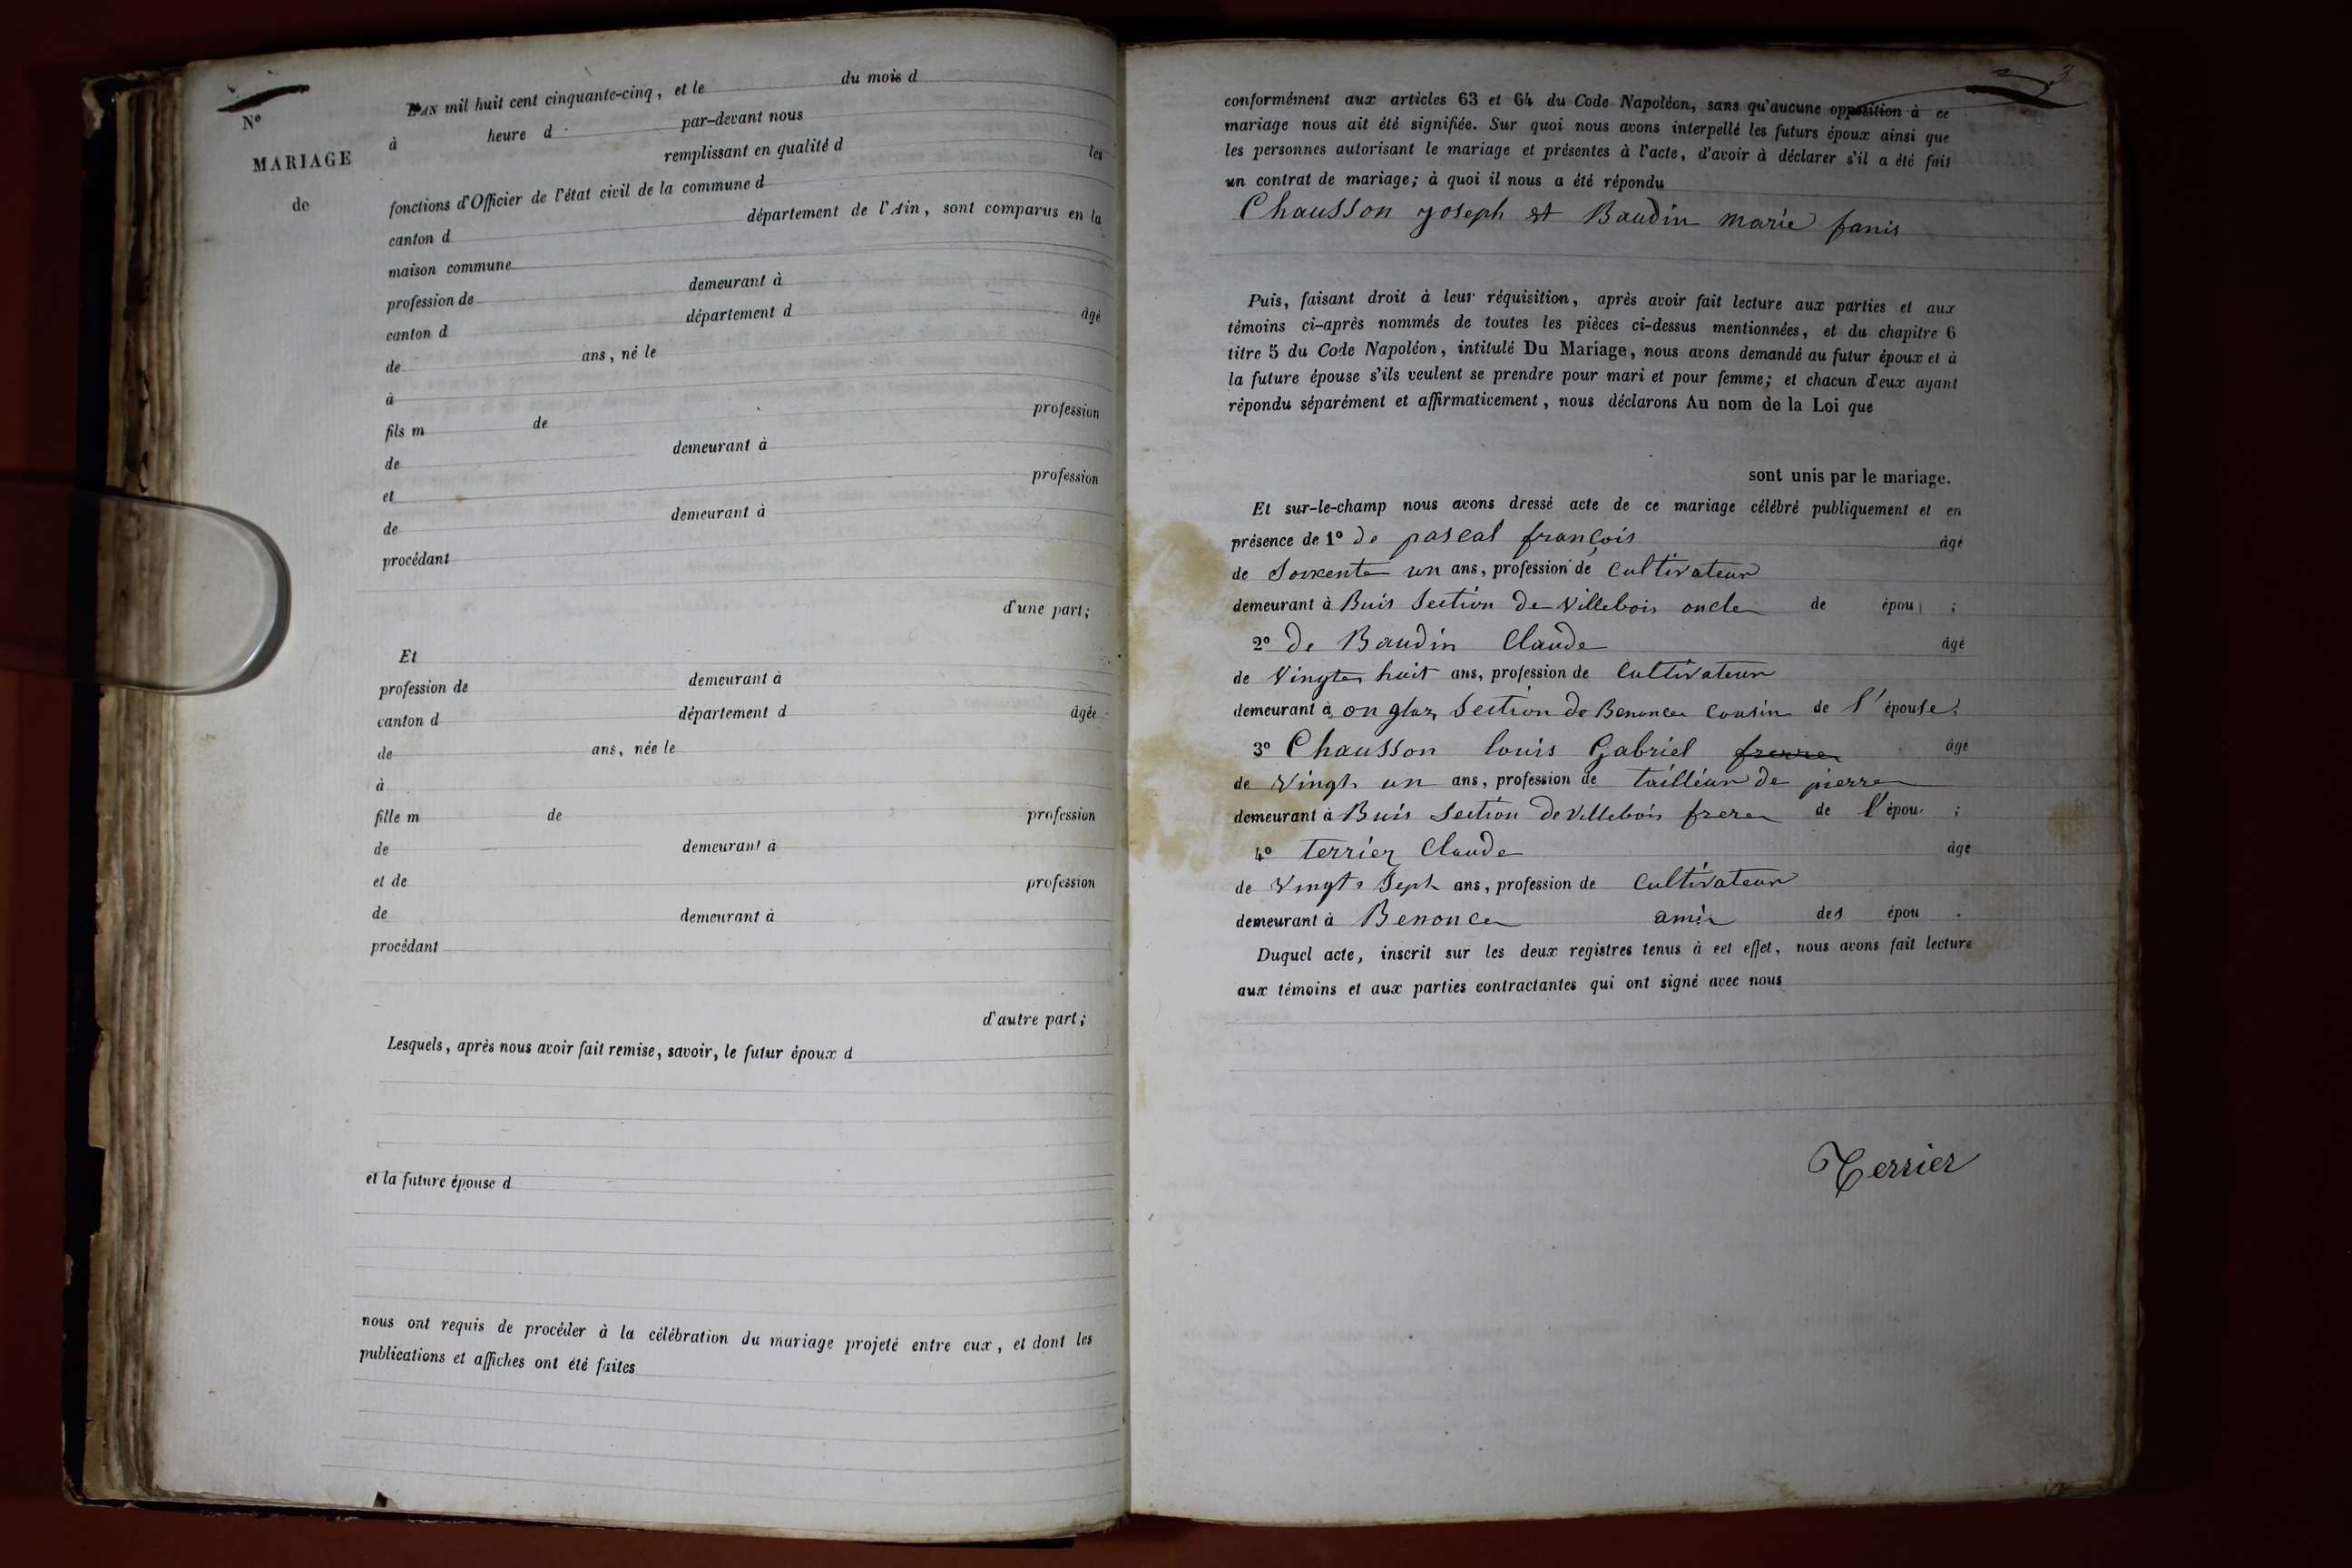 Nº
MARIAGE
de
L'AN mil huit cent cinquante-cinq, et le du mois d
à heure d par-devant nous
remplissant en qualité d les
fonctions d'Officier de l'état civil de la commune d
canton d département de l'Ain, sont comparus en la
maison commune
profession de demeurant à
canton d département d âgé
de ans, né le
à
fils m de profession
de demeurant à
et profession
de demeurant à
procédant
d'une part;
Et
profession de demeurant à
canton d département d âgée
de ans, née le
à
fille m de profession
de demeurant à
et de profession
de demeurant à
procédant
d'autre part;
Lesquels, après nous avoir fait remise, savoir, le futur époux d
et la future épouse d
nous ont requis de procéder à la célébration du mariage projeté entre eux, et dont les
publications et affiches ont été faites
3
conformément aux articles 63 et 64 du Code Napoléon, sans qu'aucune opposition à ce
mariage nous ait été signifiée. Sur quoi nous avons interpellé les futurs époux ainsi que
les personnes autorisant le mariage et présentes à l'acte, d'avoir à déclarer s'il a été fait
un contrat de mariage; à quoi il nous a été répondu
Chausson joseph et Baudin marie fanis
Puis, faisant droit à leur réquisition, après avoir fait lecture aux parties et aux
témoins ci-après nommés de toutes les pièces ci-dessus mentionnées, et du chapitre 6
titre 5 du Code Napoléon, intitulé Du Mariage, nous avons demandé au futur époux et à
la future épouse s'ils veulent se prendre pour mari et pour femme; et chacun d'eux ayant
répondu séparément et affirmativement, nous déclarons Au nom de la Loi que
sont unis par le mariage.
Et sur-le-champ nous avons dressé acte de ce mariage célébré publiquement et en
présence de 1º de pascal françois âgé
de Soixente un ans, profession de cultivateur
demeurant à Buis Section de Villebois oncle de épou ;
2º de Baudin Claude âgé
de Vingte huit ans, profession de Cultivateur
demeurant à onglas Section de Benonce Cousin de l'épouse;
3º Chausson louis Gabriel frerre âgé
de Vingt un ans, profession de tailleur de pierre
demeurant à Buis Section de Villebois frere de l'épou ;
4º Terrier Claude âgé
de Vingt Sept ans, profession de Cultivateur
demeurant à Benonce amis des épou .
Duquel acte, inscrit sur les deux registres tenus à cet effet, nous avons fait lecture
aux témoins et aux parties contractantes qui ont signé avec nous
Terrier